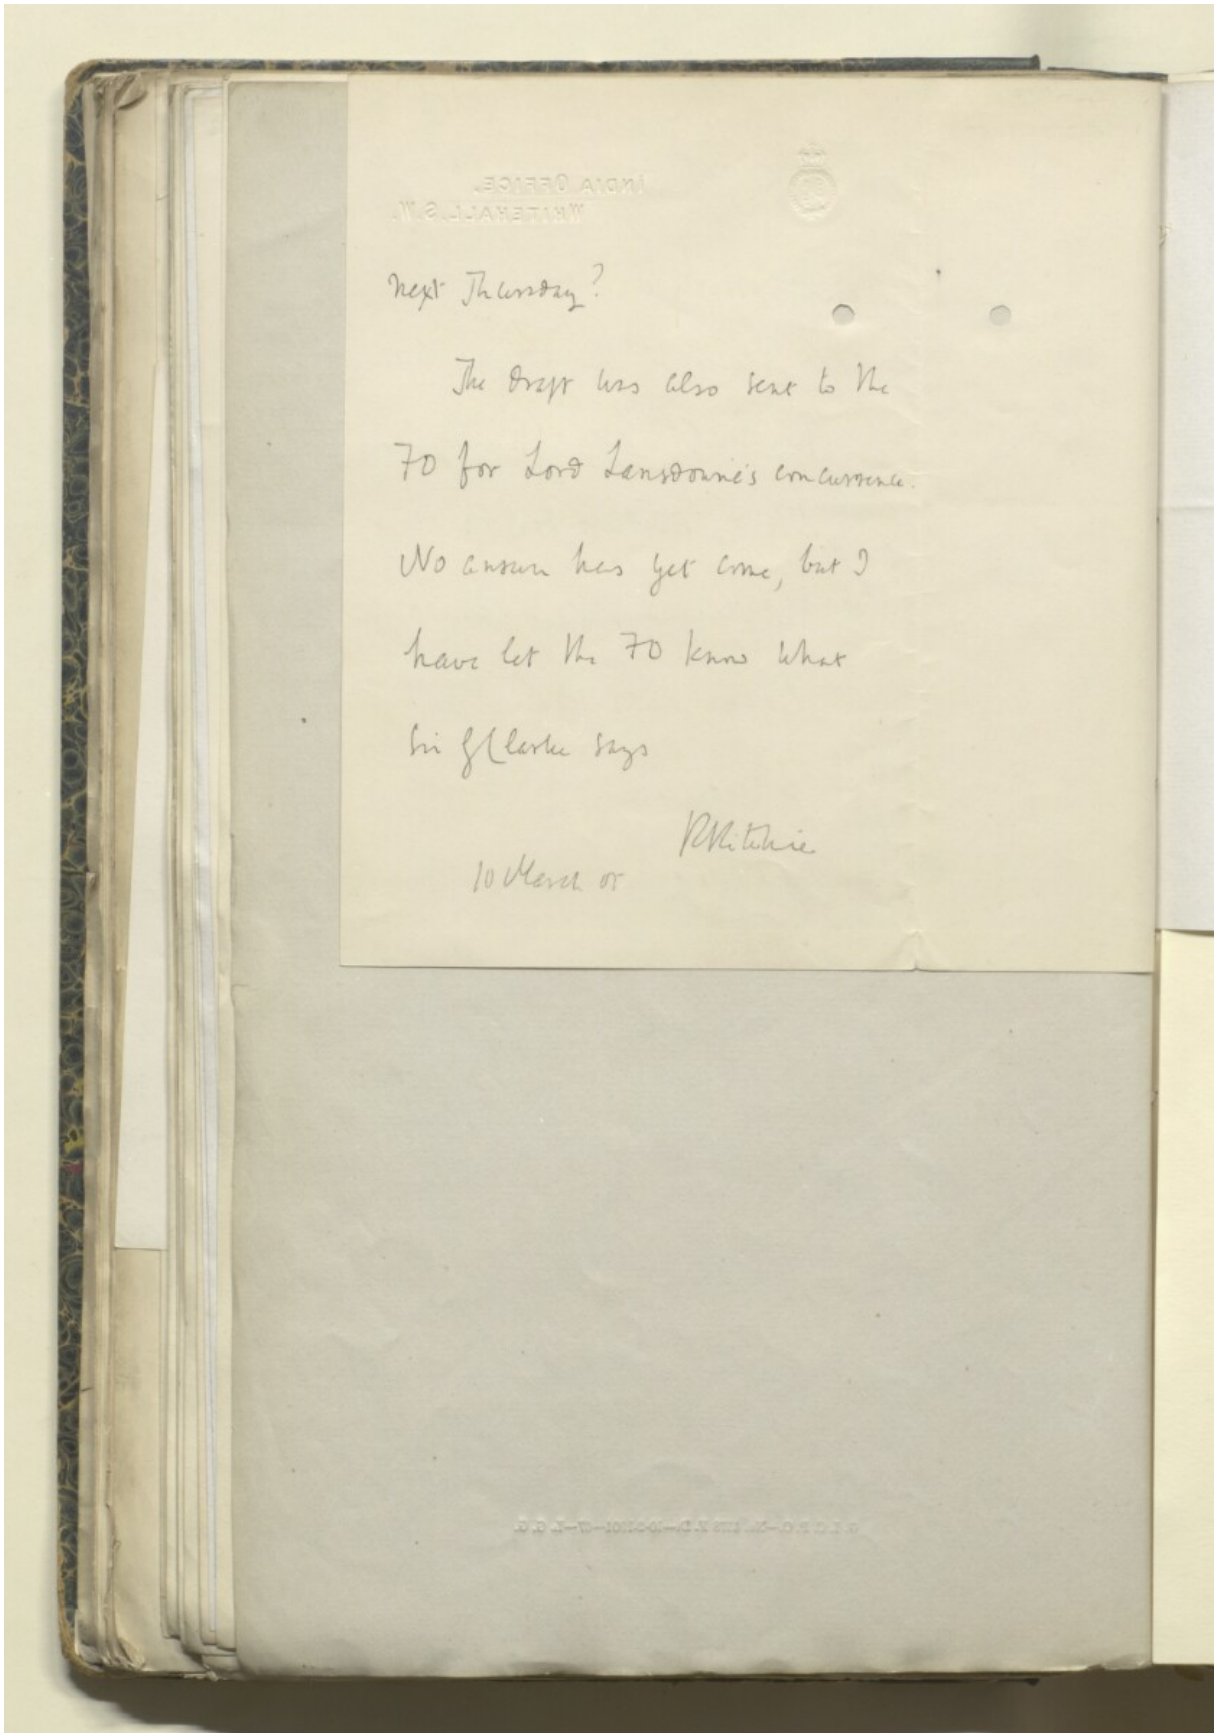 INDIA OFFICE,
WHITEHALL. S.W.
next Thursday?
The draft was also sent to the
FO for Lord Lansdowne's concurrence.
No answer has yet come, but I
have let the FO know what
Sir G Clarke says
R Ritchie
10 March 05